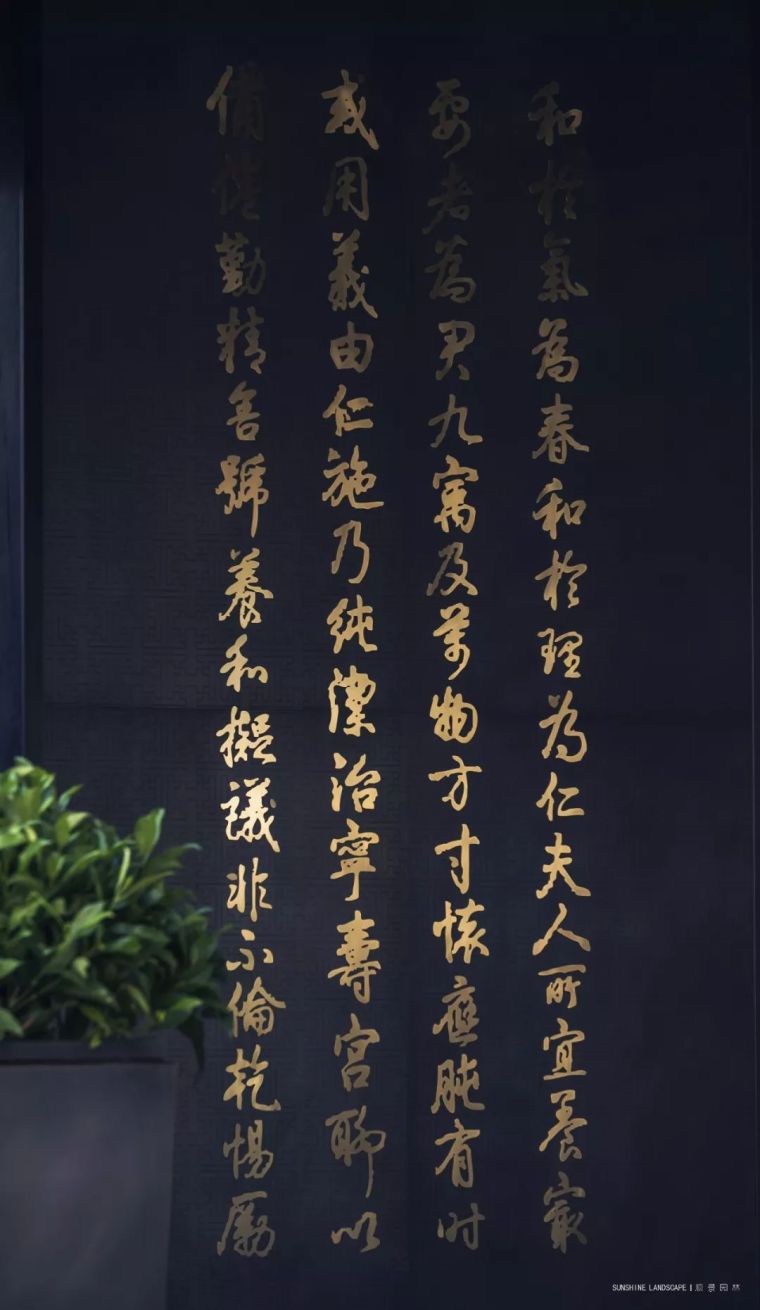 和於氣為春和於理為仁夫人所宜養最
要者為君九寓及萬物方寸懷應肫有時
或用義由仁施乃純潔治寧壽宮聊以
備惓勤精舍號養和擬議非不倫乾惕厲
SUNSHINE LANDSCAPE | 顺景园林